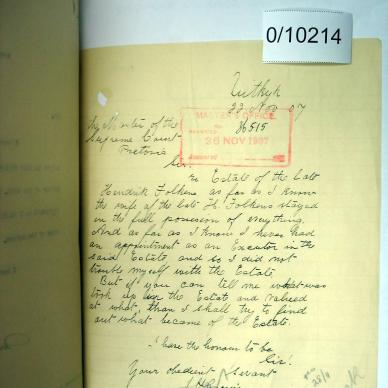 0/10214
Zuthyk
22 Nov 07
MASTER'S OFFICE
26 NOV 1907
The Master of the
Supreme Court
Pretoria
Sir.
re Estate of the late
Hendrik Folkens as far as I know
the wife of the late H. Folkens stayed
in the full possesion of everything.
And as far as I know I never had
an appointment as an Executor in the
said Estate, and so I did not
trouble myself with the Estate
But if you can tell me what was
took up the Estate and valued
at what, than I shall try to find
out what became of the Estate.
I have the honour to be
Sir!
Your obedient Servant